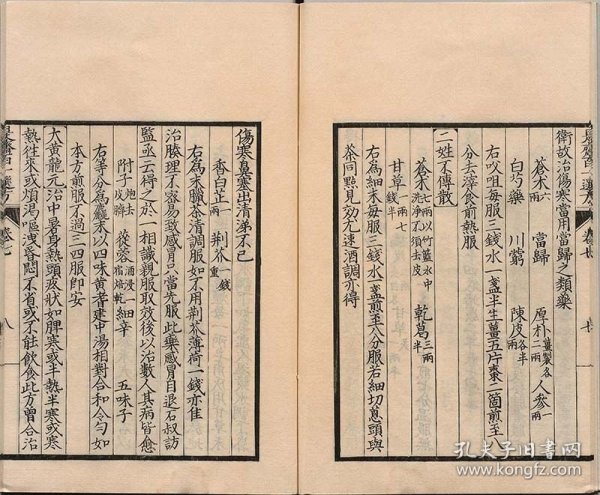 衛故治傷寒當用當歸之類藥
蒼朮一兩 當歸 厚朴薑製各二兩 人參一
白芍藥 川窮 陳皮各半兩
右㕮咀每服三錢水一盞半生薑五片棗二箇煎至八
分去滓食前熱服
二姓不傳散
蒼朮 乾葛三兩半
甘草一兩七錢半
右為細末每服三錢水一盞煎至八分服若細切葱頭與
茶同點見効尤速酒調亦得
傷寒鼻塞出清涕不已
香白芷一兩 荊芥一錢重
右為末臘茶清調服如不用荊芥薄荷一錢亦佳
治腠理不密易致感冒只當先服此藥感冒自退石叔訪
監丞云得之於一相識親服取效後以治數人其病皆愈
附子炮去皮臍 蓯蓉酒浸一宿焙乾 細辛 五味子
右等分為麤末以四味黃耆建中湯相對合和令勻如
本方煎服不過三四服即安
大黃龍元治中暑身熱頭疼狀如脾寒或半熱半寒或寒
熱往來或煩渴嘔洩昏悶不省或不能飲食此方曾合治
是齋百一選方 卷七
八
孔夫子旧书网
www.kongfz.com